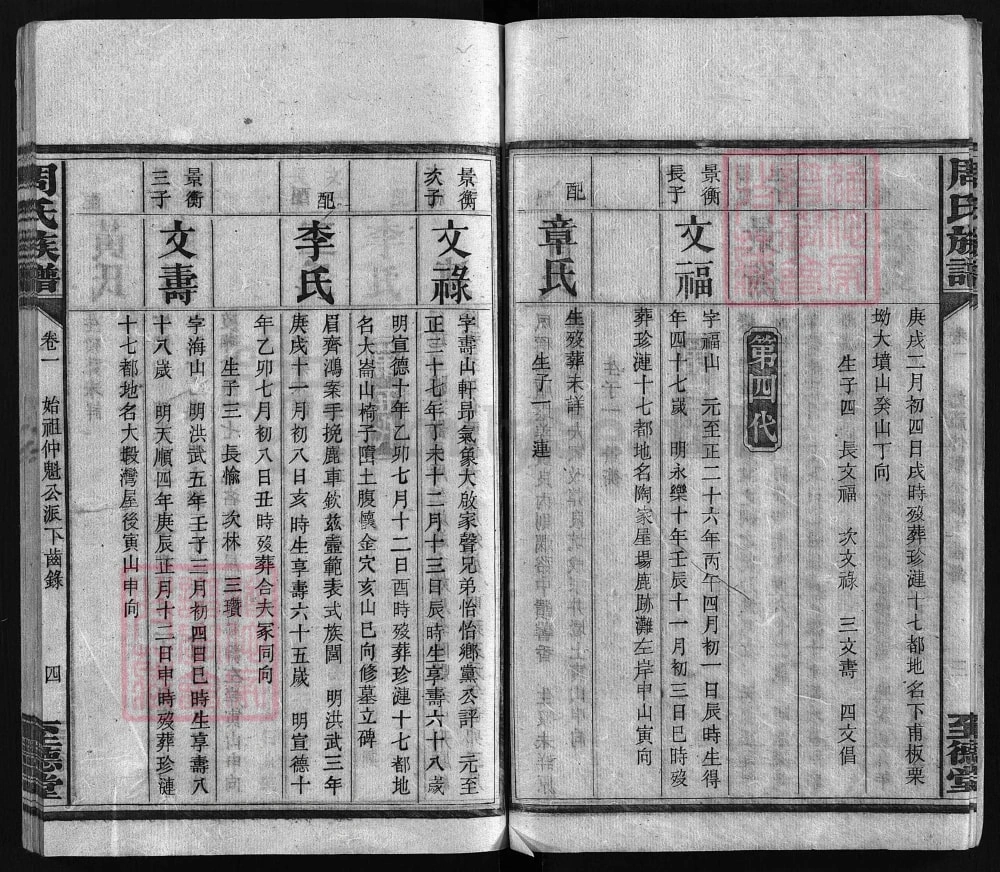 周氏族譜
至德堂
庚戌二月初四日戌時歿葬珍漣十七都地名下甫板栗
坳大墳山癸山丁向
生子四　長文福　次文祿　三文壽　四文倡
第四代
景衡
長子
文福
字福山　元至正二十六年丙午四月初一日辰時生得
年四十七歲　明永樂十年壬辰十一月初三日巳時歿
葬珍漣十七都地名陶家屋場鹿跡灘左岸申山寅向
配
章氏
生歿葬未詳
生子一　連
景衡
次子
文祿
字壽山軒昂氣象大啟家聲兄弟怡怡鄉黨公評　元至
正三十七年丁未十二月十三日辰時生享壽六十八歲
明宣德十年乙卯七月十二日酉時歿葬珍漣十七都地
名大崙山椅子墮土腹懷金穴亥山巳向修墓立碑
配
李氏
眉齊鴻案手挽鹿車欽茲壼範表式族閭　明洪武三年
庚戌十一月初八日亥時生享壽六十五歲　明宣德十
年乙卯七月初八日丑時歿葬合夫冢同向
生子三　長愉　次林　三瓚
景衡
三子
文壽
字海山　明洪武五年壬子三月初四日巳時生享壽八
十八歲　明天順四年庚辰正月十二日申時歿葬珍漣
十七都地名大塅灣屋後寅山申向
周氏族譜
卷一　始祖仲魁公派下齒錄　四
至德堂